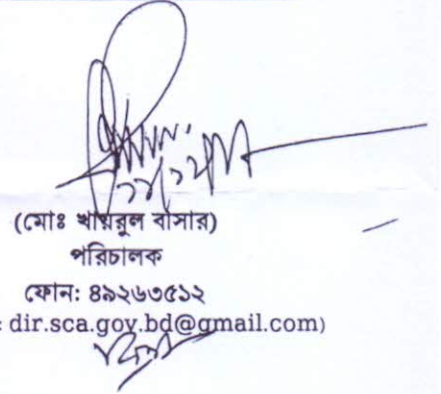 (মোঃ খায়রুল বাসার)
পরিচালক
ফোন: ৪৯২৬৩৫১২
: dir.sca.gov.bd@gmail.com)